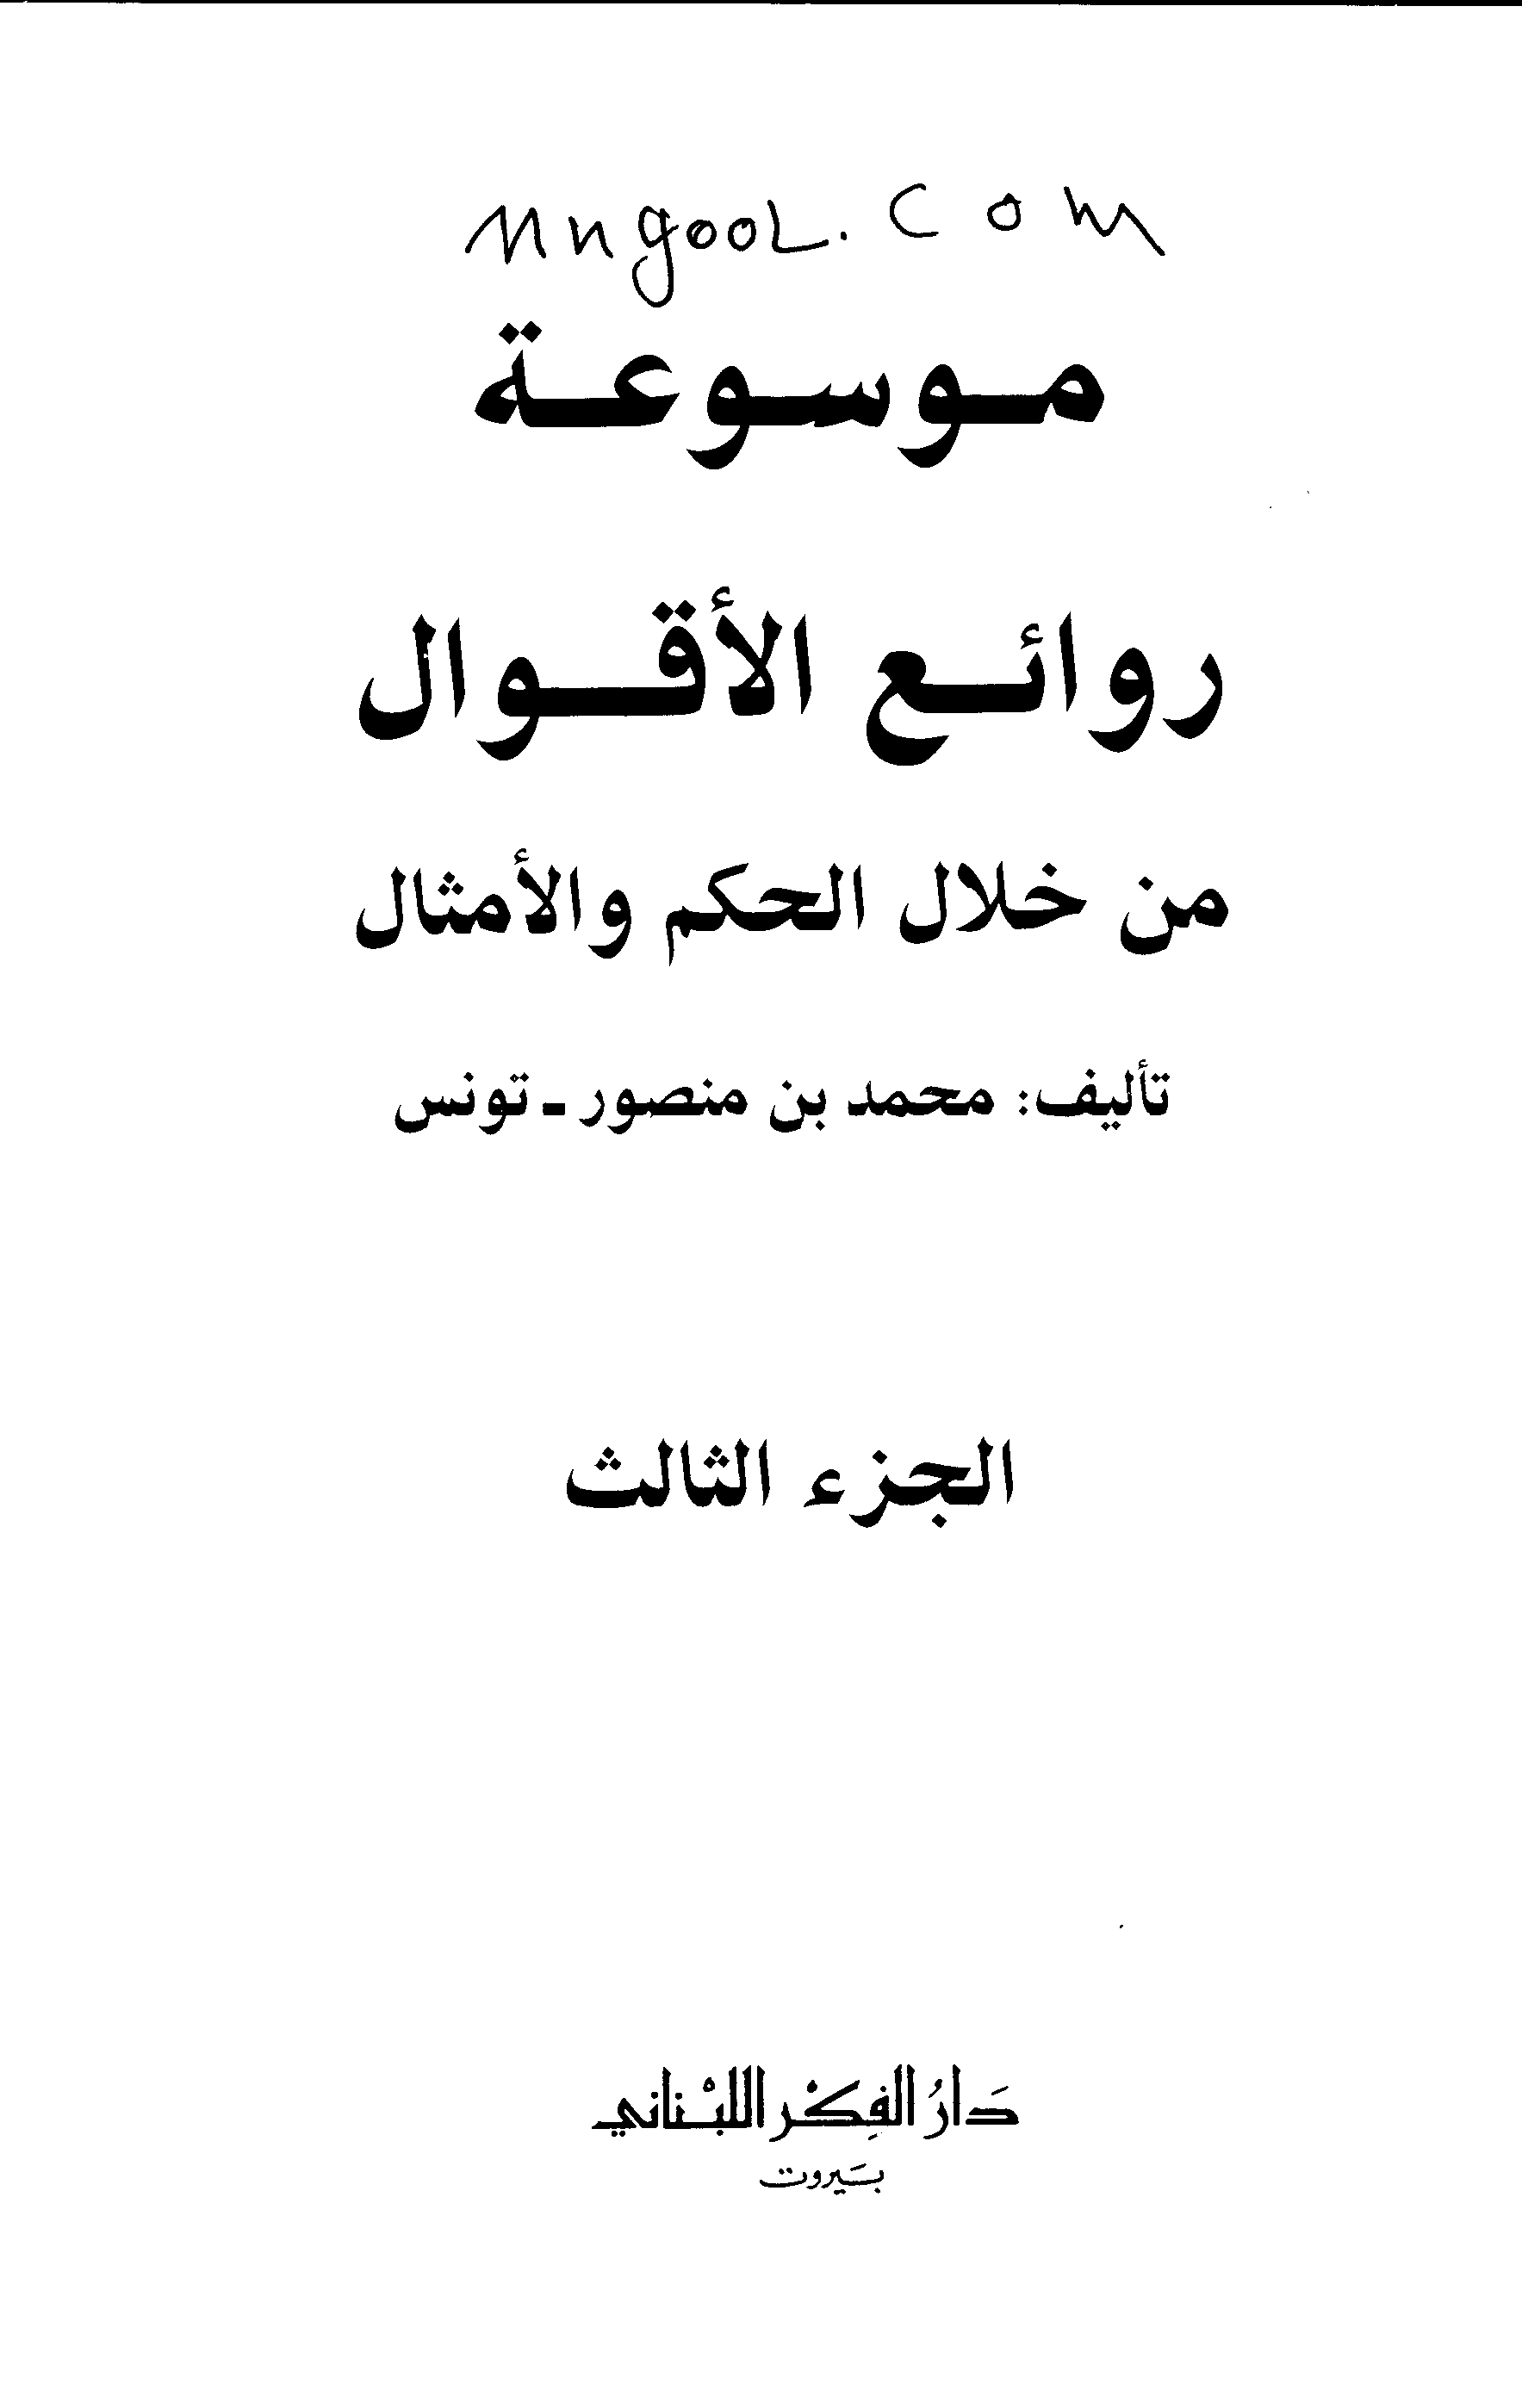 Mngool.com
موسوعة
روائع الأقوال
من خلال الحكم والأمثال
تأليف: محمد بن منصور - تونس
الجزء الثالث
دَارُ الفِكْر اللبْناني
بَيروت